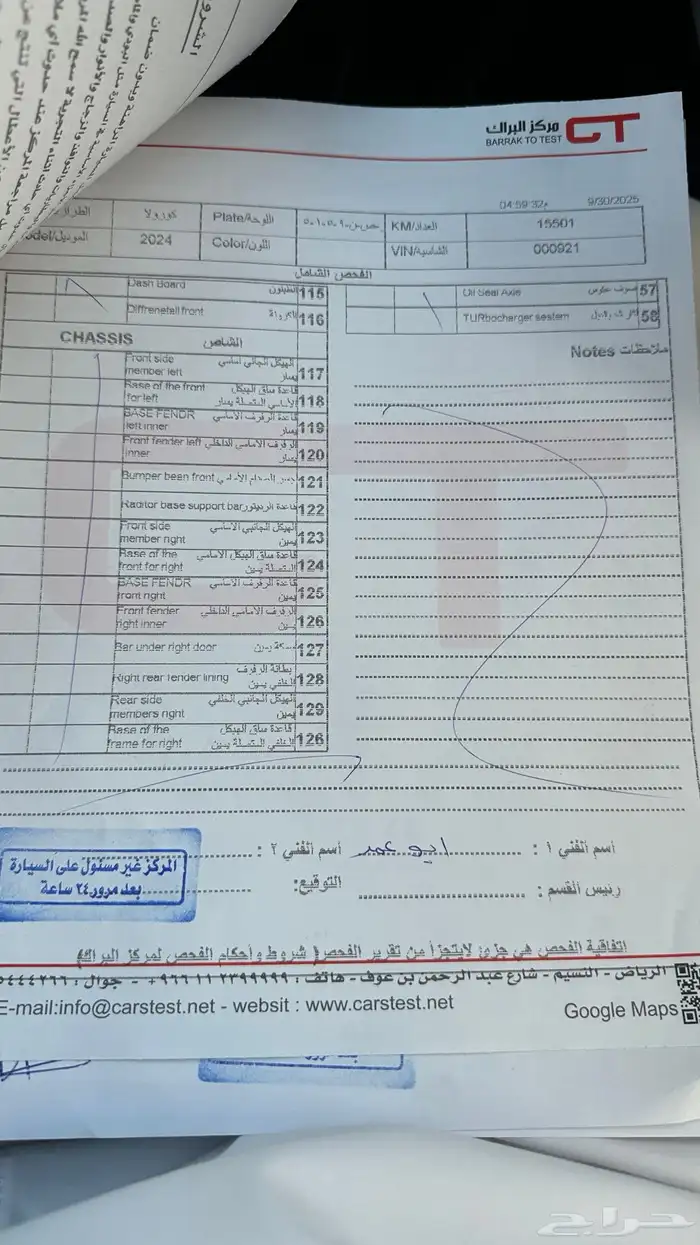 الشرو
مركز البراك
BARRAK TO TEST
CT
04:59:32م 9/30/2025
كورولا
Plate/اللوحة
KM/العداد
15501
الموديل/
2024
Color/اللون
VIN/الشاسية
000921
الفحص الشامل
Dash Board
الطبلون
115
Oil Seal Axle
57
Diffrenetall front
116
TURbocharger sestem
58
CHASSIS
الشاص
ملاحظات Notes
Front side member left
الهيكل الجانبي اساسي يسار
117
Base of the front for left
قاعدة ساق الهيكل الأساسي المتصلة يسار
118
BASE FENDR left inner
قاعدة الرفرف الأساسي يسار
119
Front fender left inner
الرفرف الامامي الداخلي يسار
120
Bumper been front
121
Raditor base support bar
قاعدة الرديتور
122
Front side member right
الهيكل الجانبي الاساسي يمين
123
Base of the front for right
قاعدة ساق الهيكل الاساسي المتصلة يمين
124
BASE FENDR front right
قاعدة الرفرف الأساسي يمين
125
Front fender right inner
الرفرف الامامي الداخلي يمين
126
Bar under right door
127
Right rear fender lining
بطانة الرفرف الخلفي يمين
128
Rear side members right
الهيكل الجانبي الخلفي يمين
129
Base of the frame for right
قاعدة ساق الهيكل الخلفي المتصلة يمين
126
اسم الفني ١ : ابو عمر اسم الفني ٢ :
رئيس القسم : التوقيع:
المركز غير مسئول على السيارة
بعد مرور ٢٤ ساعة
اتفاقية الفحص هي جزء لايتجزأ من تقرير الفحص( شروط وأحكام الفحص لمركز البراك)
الرياض - النسيم - شارع عبد الرحمن بن عوف - هاتف : ٩٦٦١١٢٣٩٩٩٩٩+ - جوال :
E-mail:info@carstest.net - websit : www.carstest.net
Google Maps
حراج